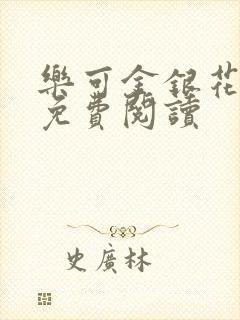 樂可金銀花
免費閱讀
史廣林